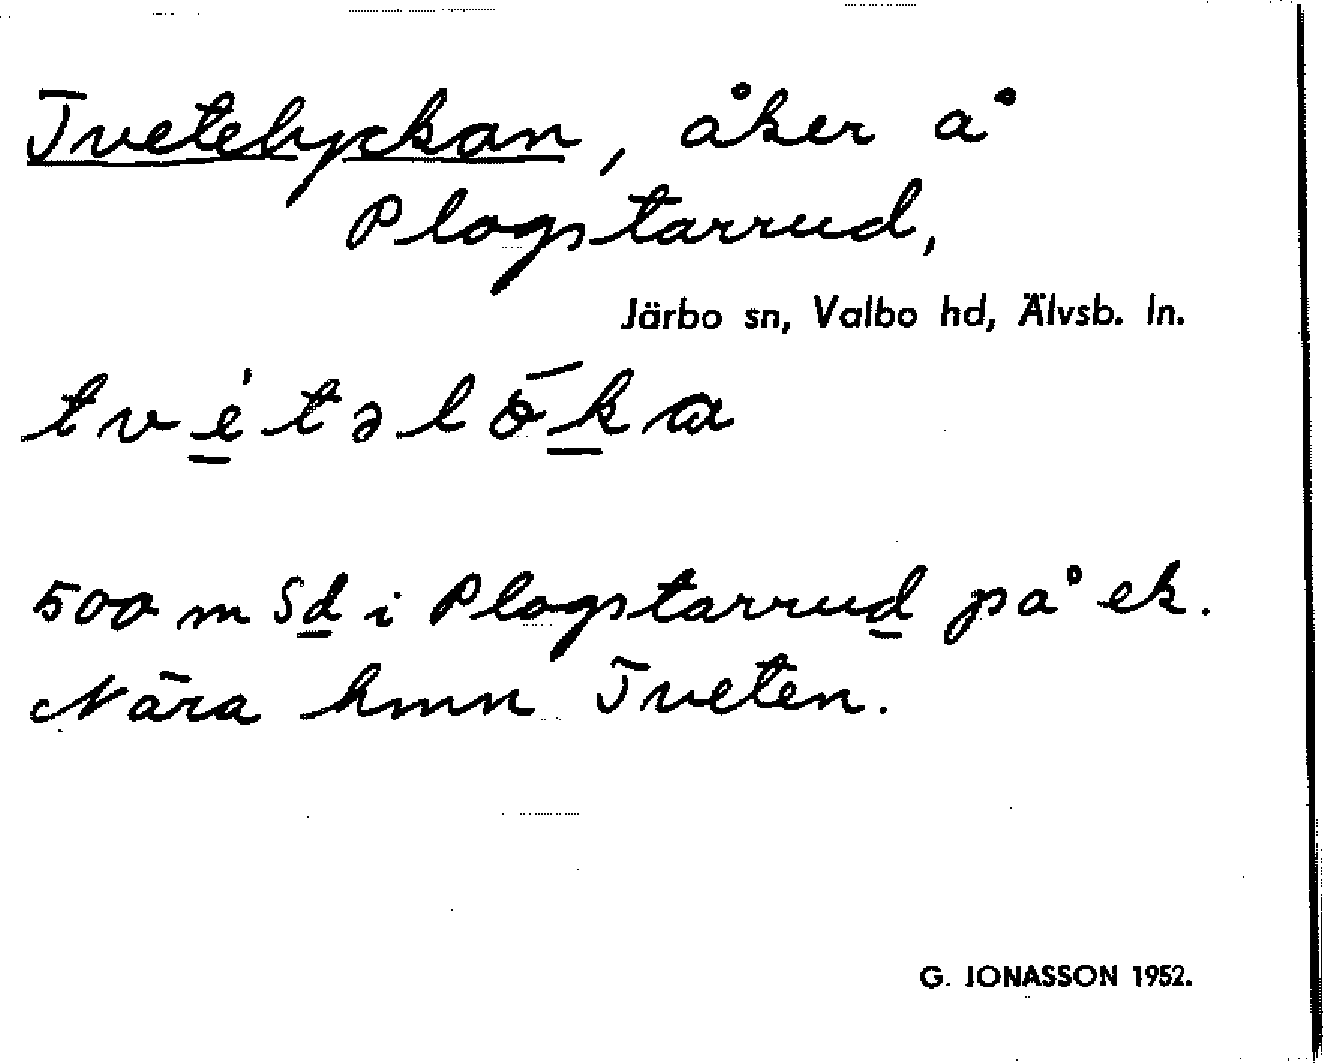 Tvetelyckan, åker å
Plogstarrud,
Järbo sn, Valbo hd, Älvsb. ln.
500 m Sd i Plogstarrud på ek.
Nära hmn Tveten.
G. JONASSON 1952.